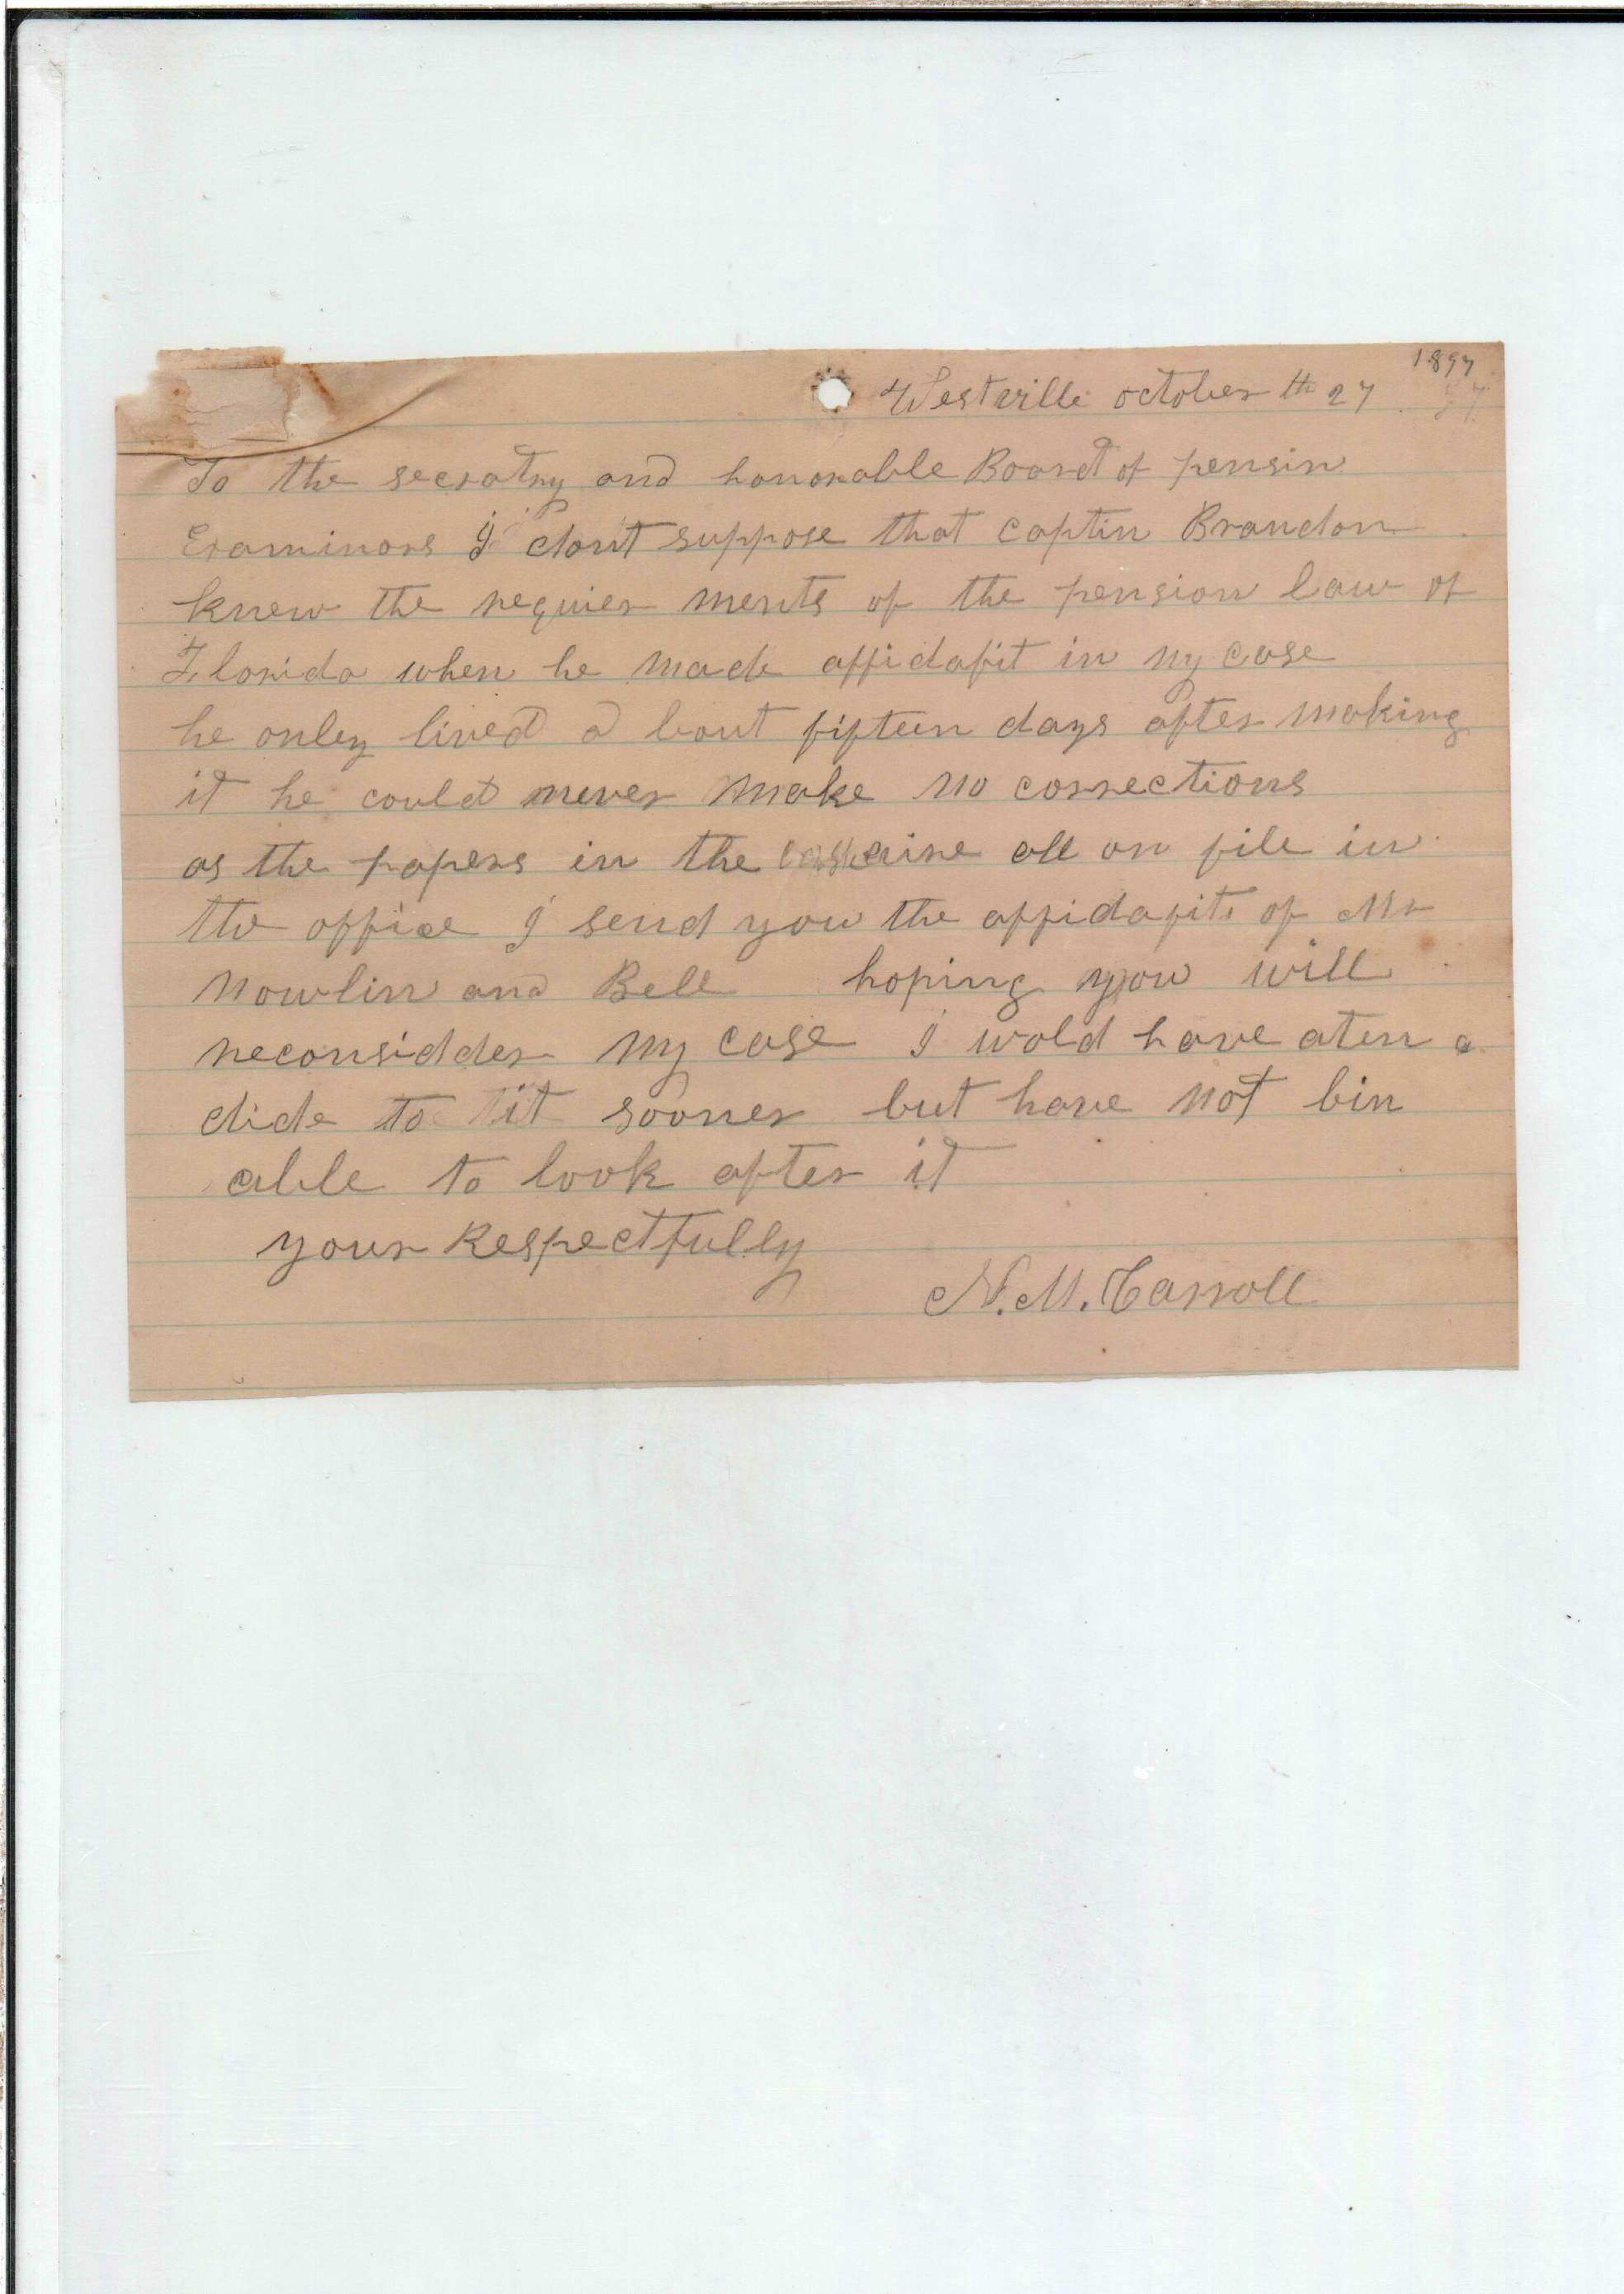 1897
Westville october th 27
To the secratry and honorable Board of pensin
Examinors I dont suppose that captin Brandon
knew the requier ments of the pension law of
Florida when he made affidafit in my case
he only lived a bout fifteen days after making
it he could never make no corrections
as the papers in the case aire all on file in
the office I send you the affidafits of Mr
Nowlin and Bell hoping you will
reconsidder my case I wold have aten
dide to it sooner but have not bin
able to look after it
your Respectfully
N. M. Carroll